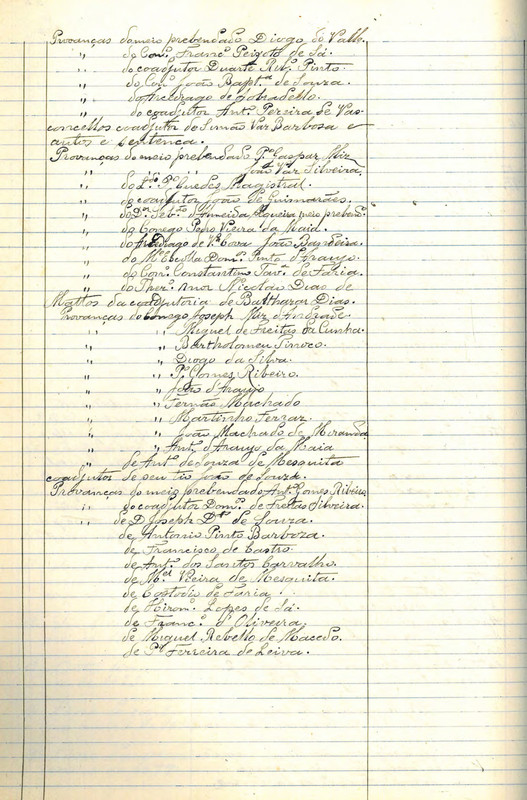 Provanças do meio prebendado Diogo do Valle.
" do Con.º Franc.º Peixoto de Sá.
" do coadjutor Duarte Rib.º Pinto.
" do Con.º João Bapt.ª de Souza.
" do Arcediago de Sobradello.
" do coadjutor Ant.º Pereira de Vas-
concellos coadjutor do Simão Vaz Barbosa e
autos e sentença.
Provanças do meio prebendado P.º Gaspar Miz
" " " João Vaz Silveira,
" do P.º Guedes Magistral.
" do coadjutor João de Guimarães.
" do D.or Seb.am d'Almeida Nogueira meio prebend.º
" do Conego Pedro Vieira da Maia.
" do Arcediago de V.ª Cova João Bandeira.
" do M.e Escolla Dom.os Pinto d'Araujo.
" do Con.º Constantino Tav.es de Faria.
" do Thez.º mor Nicolau Dias de
Mattos da coadjutoria de Balthazar Dias.
Provanças do Conego Joseph Miz d'Andrade
" " Miguel de Freitas da Cunha.
" " Bartholomeu Tinoco.
" " Diogo da Silva.
" " P.º Gomes Ribeiro.
" " João d'Araujo
" " Fernão Machado
" " Martinho Ferraz.
" " João Machado de Miranda
" " Ant.º d'Araujo da Maia
" de Ant.º de Souza de Mesquita
coadjutor de seu tio João de Souza.
Provanças do meio prebendado Ant.º Gomes Ribeiro
" do coadjutor Dom.os de Freitas Silveira.
" de D. Joseph de Souza.
de Antonio Pinto Barboza.
de Francisco de Castro.
de Ant.º dos Santos Carvalho.
de M.el Vieira de Mesquita.
de Custodio de Faria.
de Hiron.º Lopes de Sá.
de Franc.º d'Oliveira.
de Miguel Rebello de Macedo.
de P.º Ferreira de Leiva.